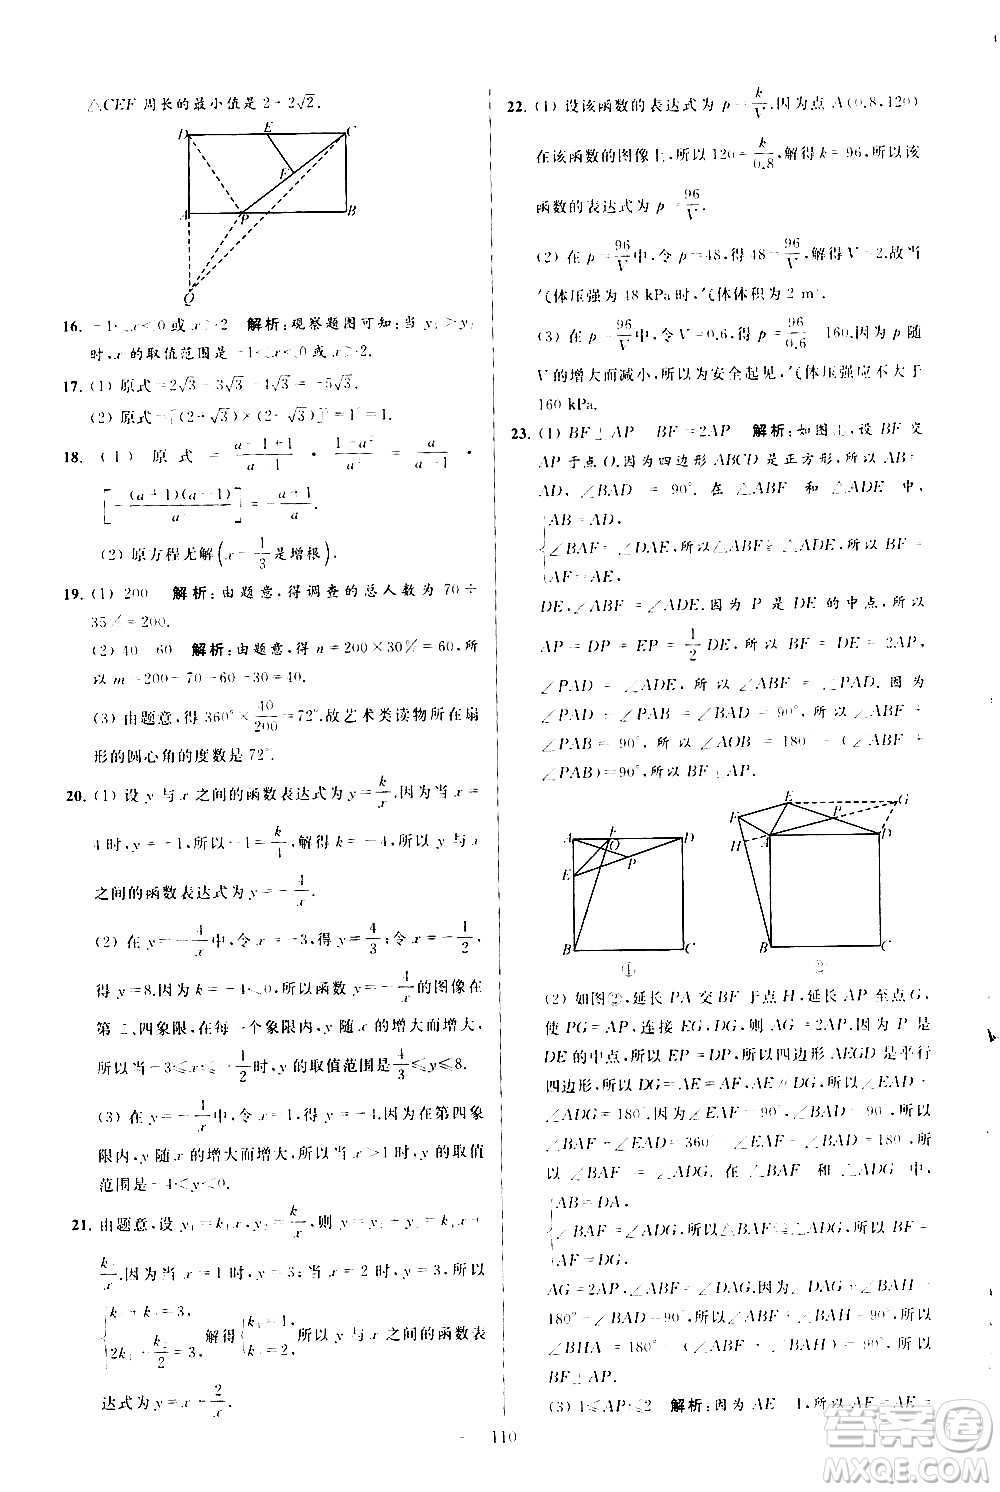 △CEF 周长的最小值是 2+2√2.
D E C
F
A P B
Q
16. -1<x<0 或 x>2 解析:观察题图可知:当 y₁>y₂
时,x 的取值范围是 -1<x<0 或 x>2.
17. (1) 原式=2√3-3√3-4√3=-5√3.
(2) 原式=[(2+√3)×(2-√3)]
18. (1) 原式 = (a-1+1)/(a-1) ÷ (1-a²)/a² = a/(a-1) ·
[-(a+1)(a-1)/a²]
(2) 原方程无解(x=1/3是增根).
19. (1) 200 解析:由题意,得调查的总人数为 70÷
35%=200.
(2) 40 60 解析:由题意,得 n=200×30%=60,所
以 m=200-70-60-30=40.
(3) 由题意,得 360°×40/200=72°.故艺术类读物所在扇
形的圆心角的度数是 72°.
20. (1) 设 y 与 x 之间的函数表达式为 y=k/x.因为当 x=
4 时,y=-1,所以-1=k/4,解得 k=-4,所以 y 与 x
之间的函数表达式为 y=-4/x.
(2) 在 y=-4/x中,令 x=-3,得 y=4/3;令 x=-1/2,
得 y=8.因为-4<0,所以 y=-4/x的图像在
第二、四象限,在每一个象限内,y 随 x 的增大而增大,
所以当-3≤x≤-1/2时,y 的取值范围是4/3≤y≤8.
(3) 在 y=-4/x中,令 x=1,得 y=-4.因为在第四象
限内,y 随 x 的增大而增大,所以当 x>1 时,y 的取值
范围是-4<y<0.
21. 由题意,设 y₁=k₁x,y₂=k₂/x,则 y=k₁x+
k₂/x.因为当 x=1 时,y=3,当 x=2 时,y=3,所以
{k₁+k₂=3, 2k₁+k₂/2=3, 解得{k₁=1, k₂=2, 所以 y 与 x 之间的函数表
达式为 y=x+2/x.
22. (1) 设该函数的表达式为 p=k/V.因为点 A(0.8,120)
在该函数的图像上,所以 120=k/0.8,解得 k=96,所以该
函数的表达式为 p=96/V.
(2) 在 p=96/V中,令 p=48,得 48=96/V,所以 V=2.故当
气体压强为 48 kPa 时,气体体积为 2 m³.
(3) 在 p=96/V中,令 V=0.6,得 p=96/0.6=160.因为 p 随
V 的增大而减小,所以为安全起见,气体压强应不大于
160 kPa.
23. (1) BF⊥AP BF=2AP 解析:如图①,设 BF 交
AP 于点 O.因为四边形 ABCD 是正方形,所以 AB=
AD, ∠BAD = 90°. 在 △ABF 和 △ADE 中,
{AB=AD,
∠BAF=∠DAE,所以△ABF≌△ADE,所以 BF=
AF=AE,
DE,∠ABF=∠ADE.因为 P 是 DE 的中点,所以
AP=DP=EP=1/2 DE,所以 BF=2AP,
∠PAD=∠ADE,所以∠ABF=∠PAD.因为
∠PAD+∠PAB=∠BAD=90°,所以∠ABF+
∠PAB=90°,所以∠AOB=180°-(∠ABF+
∠PAB)=90°,所以 BF⊥AP.
A F D
O
E P
B C
①
E G
F P
H A D
B C
②
(2) 如图②,延长 PA 交 BF 于点 H,延长 AP 至点 G,
使 PG=AP,连接 EG、DG,则 AG=2AP.因为 P 是
DE 的中点,所以 EP=DP,所以四边形 AEGD 是平行
四边形,所以 DG=AE=AF,AE∥DG,所以∠EAD+
∠ADG=180°.因为∠EAF=90°,∠BAD=90°,所以
∠BAF+∠EAD=360°-∠EAF-∠BAD=180°,所
以∠BAF=∠ADG.在 △BAF 和 △ADG 中,
{AB=DA,
∠BAF=∠ADG,所以△BAF≌△ADG,所以 BF=
AF=DG,
AG=2AP,∠ABF=∠DAG.因为∠DAG+∠BAH=
180°-∠BAD=90°,所以∠ABF+∠BAH=90°,所以
∠BHA=180°-(∠ABF+∠BAH)=90°,所以
BF⊥AP.
(3) 1≤AP≤2 解析:因为 AE=1,所以 AF=AE=
110
答案圈
MXQE.COM